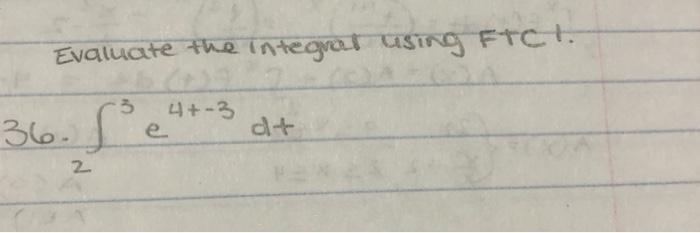 Evaluate the integral using FTC 1.
36. ∫₂³ e^(4t-3) dt